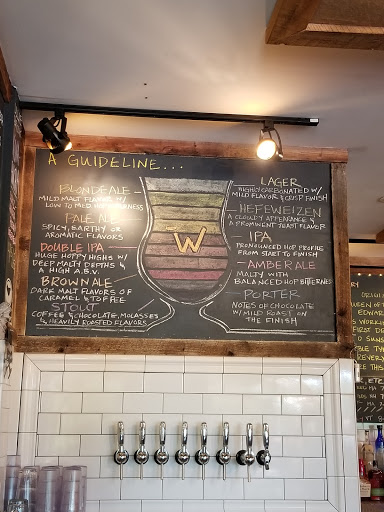 A GUIDELINE...
BLONDE ALE
MILD MALT FLAVOR W/
LOW TO MED HOP BITTERNESS
PALE ALE
SPICY, EARTHY OR
AROMATIC FLAVORS
DOUBLE IPA
HUGE HOPPY HIGHS W/
DEEP MALTY DEPTHS &
A HIGH A.B.V.
BROWN ALE
DARK MALT FLAVORS OF
CARAMEL & TOFFEE
STOUT
COFFEE & CHOCOLATE, MOLASSES
& HEAVILY ROASTED FLAVORS
W
LAGER
HIGHLY CARBONATED W/
MILD FLAVOR & CRISP FINISH
HEFEWEIZEN
A CLOUDY APPEARANCE &
A PROMINENT YEAST FLAVOR
IPA
PRONOUNCED HOP PROFILE
FROM START TO FINISH
AMBER ALE
MALTY WITH
BALANCED HOP BITTERNES
PORTER
NOTES OF CHOCOLATE
W/ MILD ROAST ON
THE FINISH
RY
ORIGI
EDWAR
FIRST D
THIS
ETC